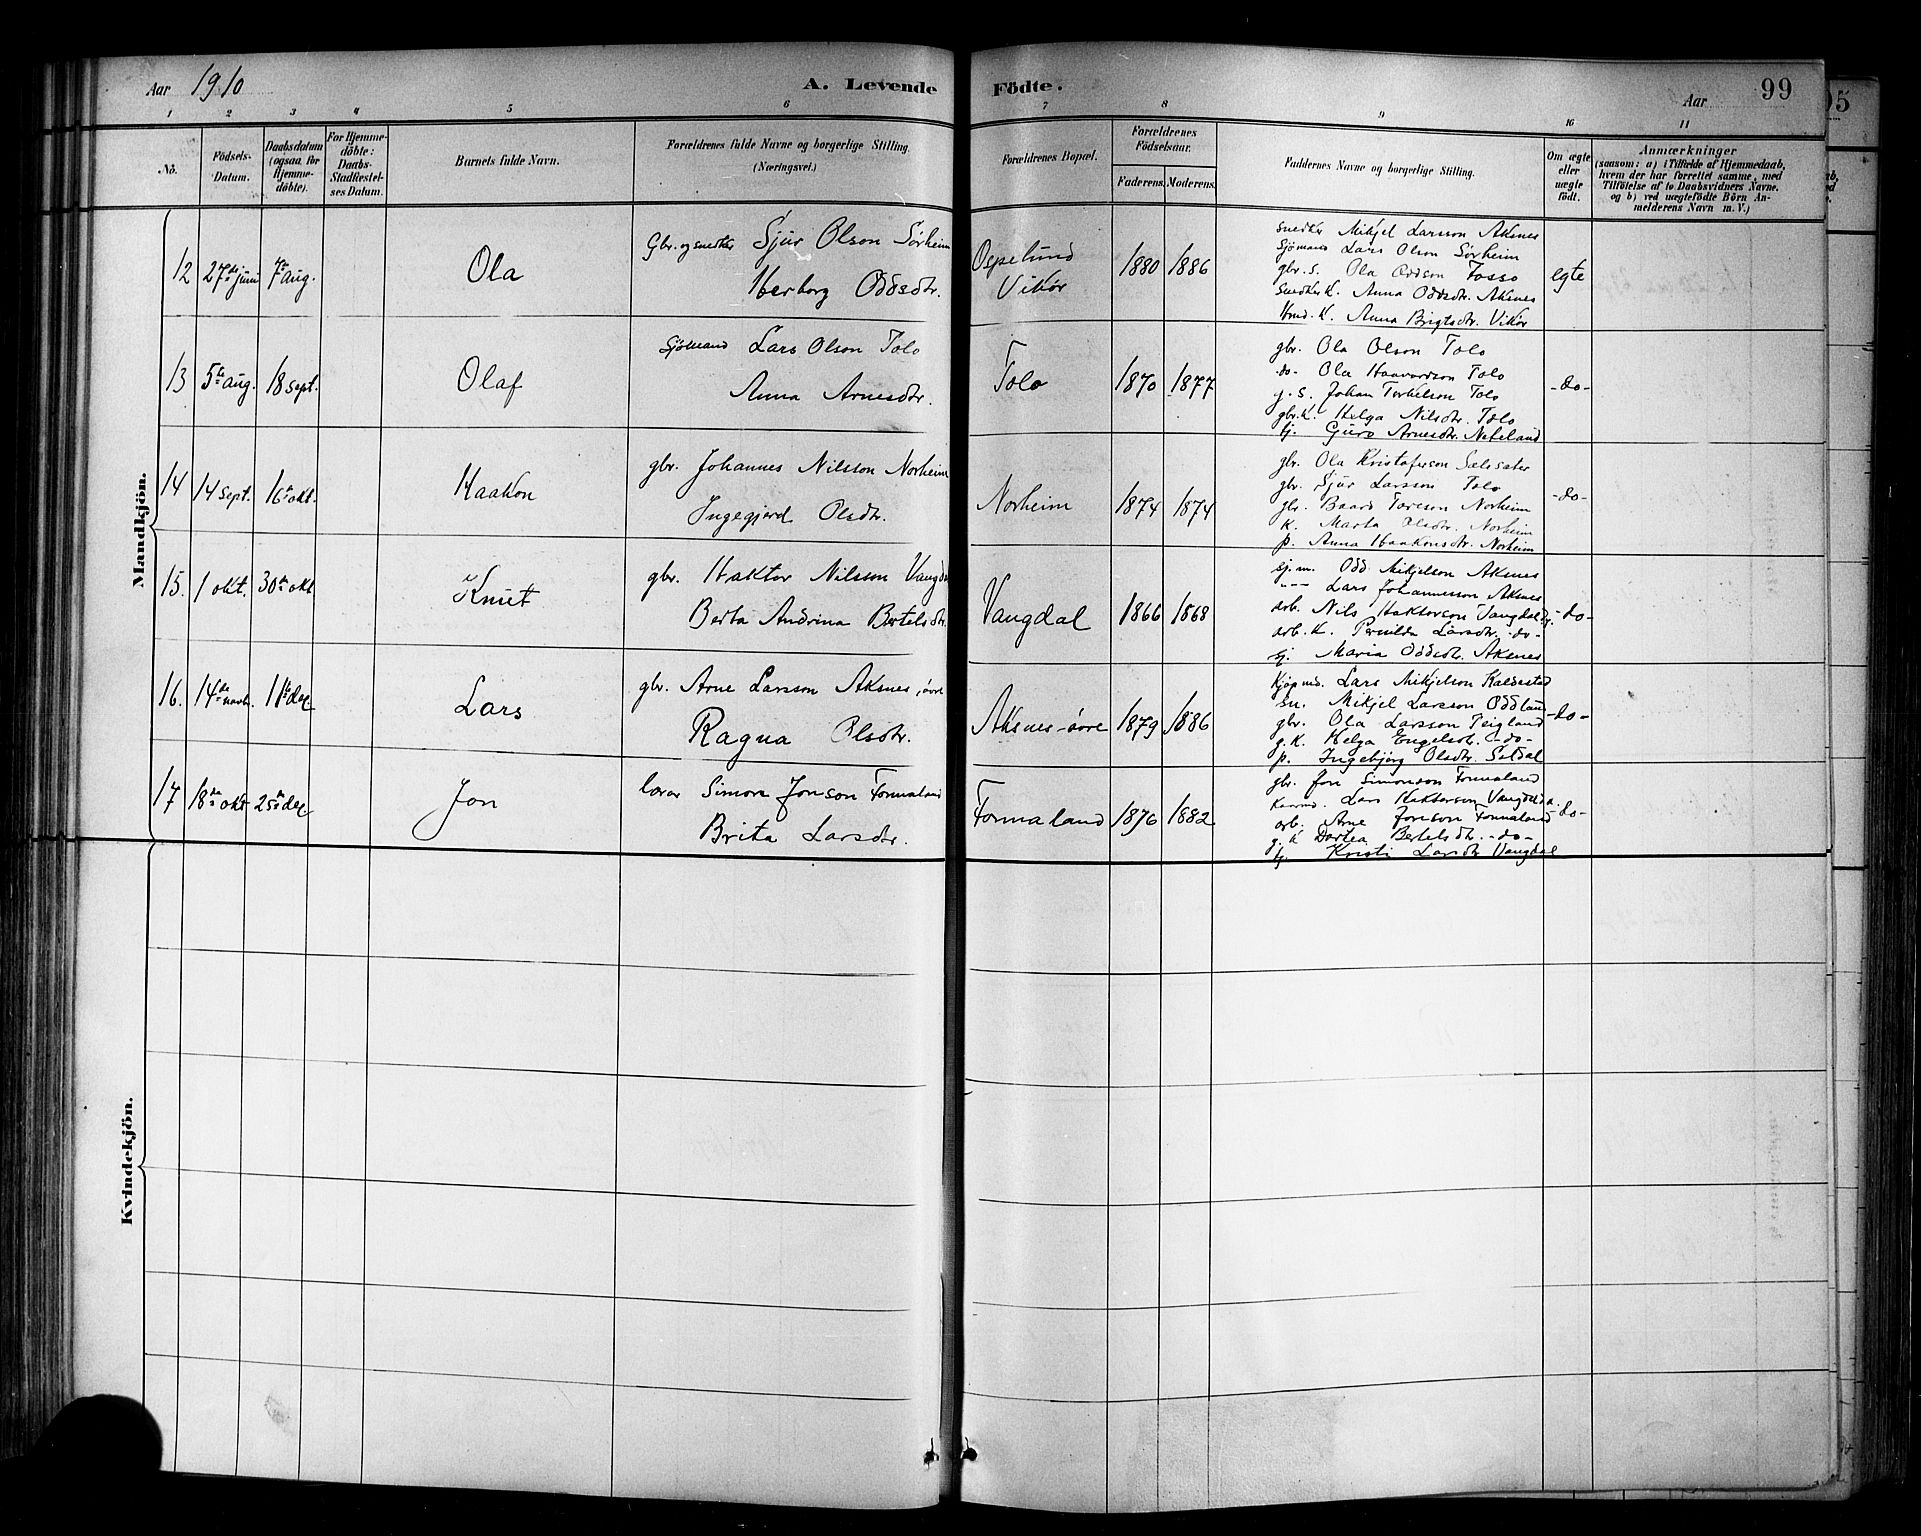 Aar 1910
A. Levende Födte.
Aar
99
1 2 3 4 5 6 7 8 9 10 11
No.
Födsels-Datum.
Daabsdatum (ogsaa for Hjemmedöbte).
For Hjemmedöbte: Daabs-Stadfæstelses Datum.
Barnets fulde Navn.
Forældrenes fulde Navne og borgerlige Stilling. (Næringsvei.)
Forældrenes Bopæl.
Forældrenes Födselsaar.
Faderens. Moderens.
Faddernes Navne og borgerlige Stilling.
Om ægte eller uægte födt.
Anmærkninger
(saasom: a) i Tilfælde af Hjemmedaab,
hvem der har forrettet samme, med
Tilföielse af to Daabsvidners Navne.
og b) ved uægtefödte Börn An-
melderens Navn m. V.)
Mandkjön.
12 27de juni 7de aug. Ola
Gbr. og snedker Sjur Olson Sörheim
Herborg Oddsdtr.
Ospelund
Vikör
1880 1886
snedker Mikjel Larsson Aksnes
Sjömand Lars Olson Sörheim
gbr. s. Ola Oddson Fosso
Snedker k. Anna Oddsdtr. Aksnes
k. Anna Brigtsdtr. Vikör
egte
13 5te aug. 18 sept. Olaf
Sjömand Lars Olson Tolo
Anna Arnesdtr.
Tolo
1870 1877
gbr. Ola Olson Tolo
-do- Ola Haavardson Tolo
g. s. Johan Torkelson Tolo
gbr. k. Helga Nilsdtr. Tolo
tj. Guro Arnesdtr. Neteland
-do-
14 14 sept. 16de okt. Haakon
gbr. Johannes Nilsson Norheim
Ingegjerd Olsdtr.
Norheim
1874 1874
gbr. Ola Kristoferson Sælsæter
gbr. Sjur Larsson Tolo
gbr. Baard Toreson Norheim
k. Marta Olsdtr. Norheim
p. Anna Haakonsdtr. Norheim
-do-
15. 1 okt. 30te okt. Knut
gbr. Haktor Nilsson Vangdal
Berta Andrina Bertelsdtr.
Vangdal
1866 1868
sj.m. Odd Mikjelson Aksnes
--- Lars Johannesson Aksnes
arb. Nils Haktorson Vangdal
arb. k. Pernilda Larsdtr. -do-
tj. Maria Oddsdtr. Aksnes
-do-
16. 14de novb. 11te dec. Lars
gbr. Arne Larsson Aksnes, övre
Ragna Olsdtr.
Aksnes-övre
1879 1886
Kjøpmd. Lars Mikjelson Kaldestad
sn. Mikjel Larsson Oddland
gbr. Ola Larsson Teigland
g. k. Helga Engelsdtr. -do-
p. Ingebjörg Olsdtr. Soldal
-do-
17 18de okt. 25de dec. Jon
lærar Simon Jonson Tormaland
Brita Larsdtr.
Tormaland
1876 1882
gbr. Jon Simonson Tormaland
Lars Haktorson Vangdal
arb. Arne Jonson Tormaland
g. k. Dortea Bertelsdtr. -do-
tj. Kristi Larsdtr Vangdal
-do-
Kvindekjön.